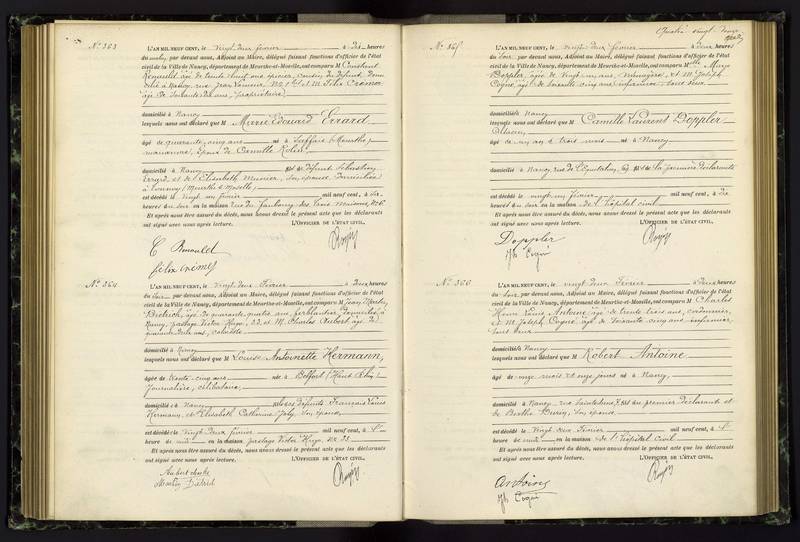 N° 363
L'AN MIL NEUF CENT, le vingt deux février à dix heures
du matin, par devant nous, Adjoint au Maire, délégué faisant fonctions d'officier de l'état
civil de la Ville de Nancy, département de Meurthe-et-Moselle, ont comparu M Constant
Renauld, âgé de trente huit ans, épicier, cousin du défunt, domi
cilié à Nancy, rue et M Félix
âgé de soixante dix ans, propriétaire,
domicilié à Nancy
lesquels nous ont déclaré que M Marie Edouard Errard
âgé de quarante cinq ans né à Saffais (Meurthe)
époux de Camille Kolin
domicilié à Nancy fils de défunt Sébastien
Errard, et de Elisabeth Munier, son épouse domiciliée
à (Meurthe & Moselle)
est décédé le vingt un février mil neuf cent, à six
heures du soir en la maison rue du Faubourg des Trois Maisons, N°
Et après nous être assuré du décès, nous avons dressé le présent acte que les déclarants
ont signé avec nous après lecture. L'OFFICIER DE L'ÉTAT CIVIL,
C Renauld
Félix
N° 364
L'AN MIL NEUF CENT, le vingt deux Février à deux heures
du soir, par devant nous, Adjoint au Maire, délégué faisant fonctions d'officier de l'état
civil de la Ville de Nancy, département de Meurthe-et-Moselle, ont comparu M Jean Martin
Dietrich, âgé de quarante quatre ans, ferblantier, domicilié à
Nancy, passage Victor Hugo, 23 et M. Charles Aubert âgé de
quarante deux ans,
domicilié à Nancy
lesquels nous ont déclaré que M Louise Antoinette Hermann,
âgée de trente cinq ans née à Belfort (Haut Rhin)
journalière, célibataire,
domiciliée à Nancy fille des défunts François Louis
Hermann, et Elisabeth Catherine Joly, son épouse
est décédée le vingt deux février mil neuf cent, à
heure de en la maison passage Victor Hugo, N° 23
Et après nous être assuré du décès, nous avons dressé le présent acte que les déclarants
ont signé avec nous après lecture. L'OFFICIER DE L'ÉTAT CIVIL,
Aubert charles
Martin Dietrich
Quatre vingt
N° 365
L'AN MIL NEUF CENT, le vingt deux février à deux heures
du soir, par devant nous, Adjoint au Maire, délégué faisant fonctions d'officier de l'état
civil de la Ville de Nancy, département de Meurthe-et-Moselle, ont comparu M
Doppler, âgée de vingt un ans, ménagère, et M Joseph
Cogné, âgé de soixante cinq ans infirmier, tous deux
domiciliés à Nancy
lesquels nous ont déclaré que M Camille Laurent Doppler
âgé de un an & trois mois né à Nancy
domicilié à Nancy, rue de l'Equitation, fils de la première déclarante
est décédé le vingt un février mil neuf cent, à dix
heures du soir en la maison de l'hôpital civil
Et après nous être assuré du décès, nous avons dressé le présent acte que les déclarants
ont signé avec nous après lecture. L'OFFICIER DE L'ÉTAT CIVIL,
Doppler
Jh Cogné
N° 366
L'AN MIL NEUF CENT, le vingt deux Février à deux heures
du soir, par devant nous, Adjoint au Maire, délégué faisant fonctions d'officier de l'état
civil de la Ville de Nancy, département de Meurthe-et-Moselle, ont comparu M Charles
Henri Louis Antoine âgé de trente trois ans, cordonnier,
et M Joseph Cogné, âgé de soixante cinq ans infirmier,
tous deux
domiciliés à Nancy
lesquels nous ont déclaré que M Robert Antoine
âgé de onze mois et onze jours né à Nancy,
domicilié à Nancy rue fils du premier déclarant et
de Berthe son épouse
est décédé le vingt deux Février mil neuf cent, à
heure de en la maison de l'hôpital Civil
Et après nous être assuré du décès, nous avons dressé le présent acte que les déclarants
ont signé avec nous après lecture. L'OFFICIER DE L'ÉTAT CIVIL,
Antoine
Jh Cogné